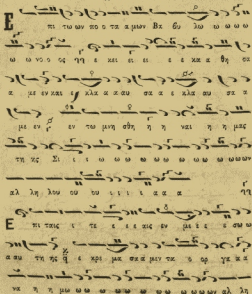 Ε πι τω ων πο τα α μων Βα βυ λω ω ω ω ω
ω ω νο ο ος ε κει ει ει ε ε κα α θη σα
α με εν και κλα α α αυ σα α ε κλα αυ σα α
α με εν εν τω μι νη σθη η η ναι η η μας
της Σι ι ω ω ω ω ω ω ω ω ω ω ων
αλ λη λου ου ου ι ι ι ε α α α
Ε πι ταις ι τε ε ε αις εν με ε ε σω ω
α αυ της ε κρε μα σα α μεν τα ο ορ γα α α
να η η μω ω ω ω ω ω ω ω ων αλ λη